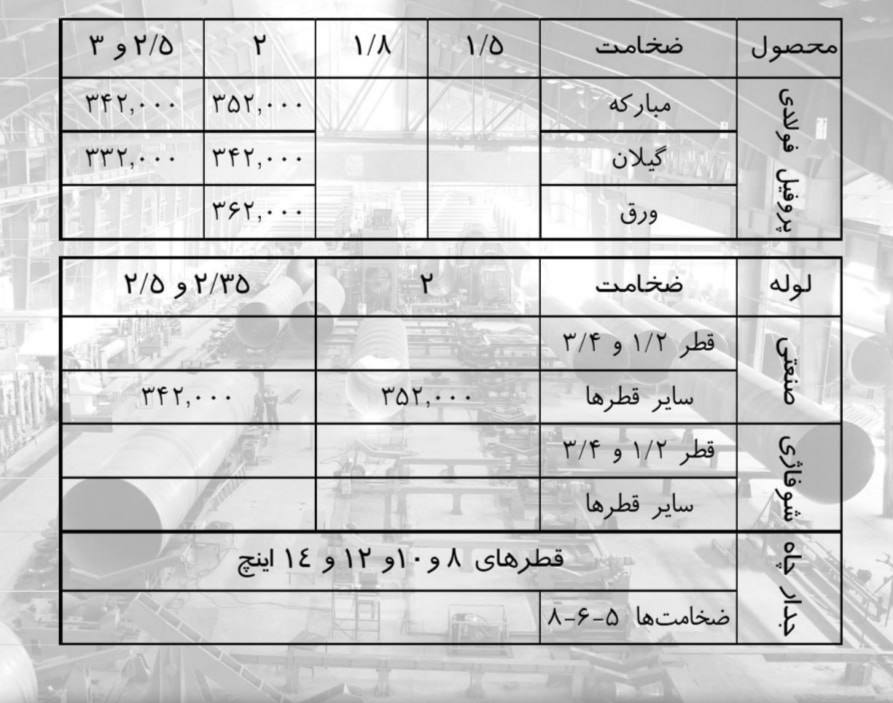 محصول ضخامت ۱/۵ ۱/۸ ۲ ۲/۵ و ۳
پروفیل فولادی
مبارکه ۳۵۲,۰۰۰ ۳۴۲,۰۰۰
گیلان ۳۴۲,۰۰۰ ۳۳۲,۰۰۰
ورق ۳۶۲,۰۰۰
لوله ضخامت ۲ ۲/۳۵ و ۲/۵
صنعتی
قطر ۱/۲ و ۳/۴
سایر قطرها ۳۵۲,۰۰۰ ۳۴۲,۰۰۰
شوفاژی
قطر ۱/۲ و ۳/۴
سایر قطرها
جدار چاه
قطرهای ۸ و ۱۰و ۱۲ و ۱٤ اینچ
ضخامت‌ها ۵-۶-۸